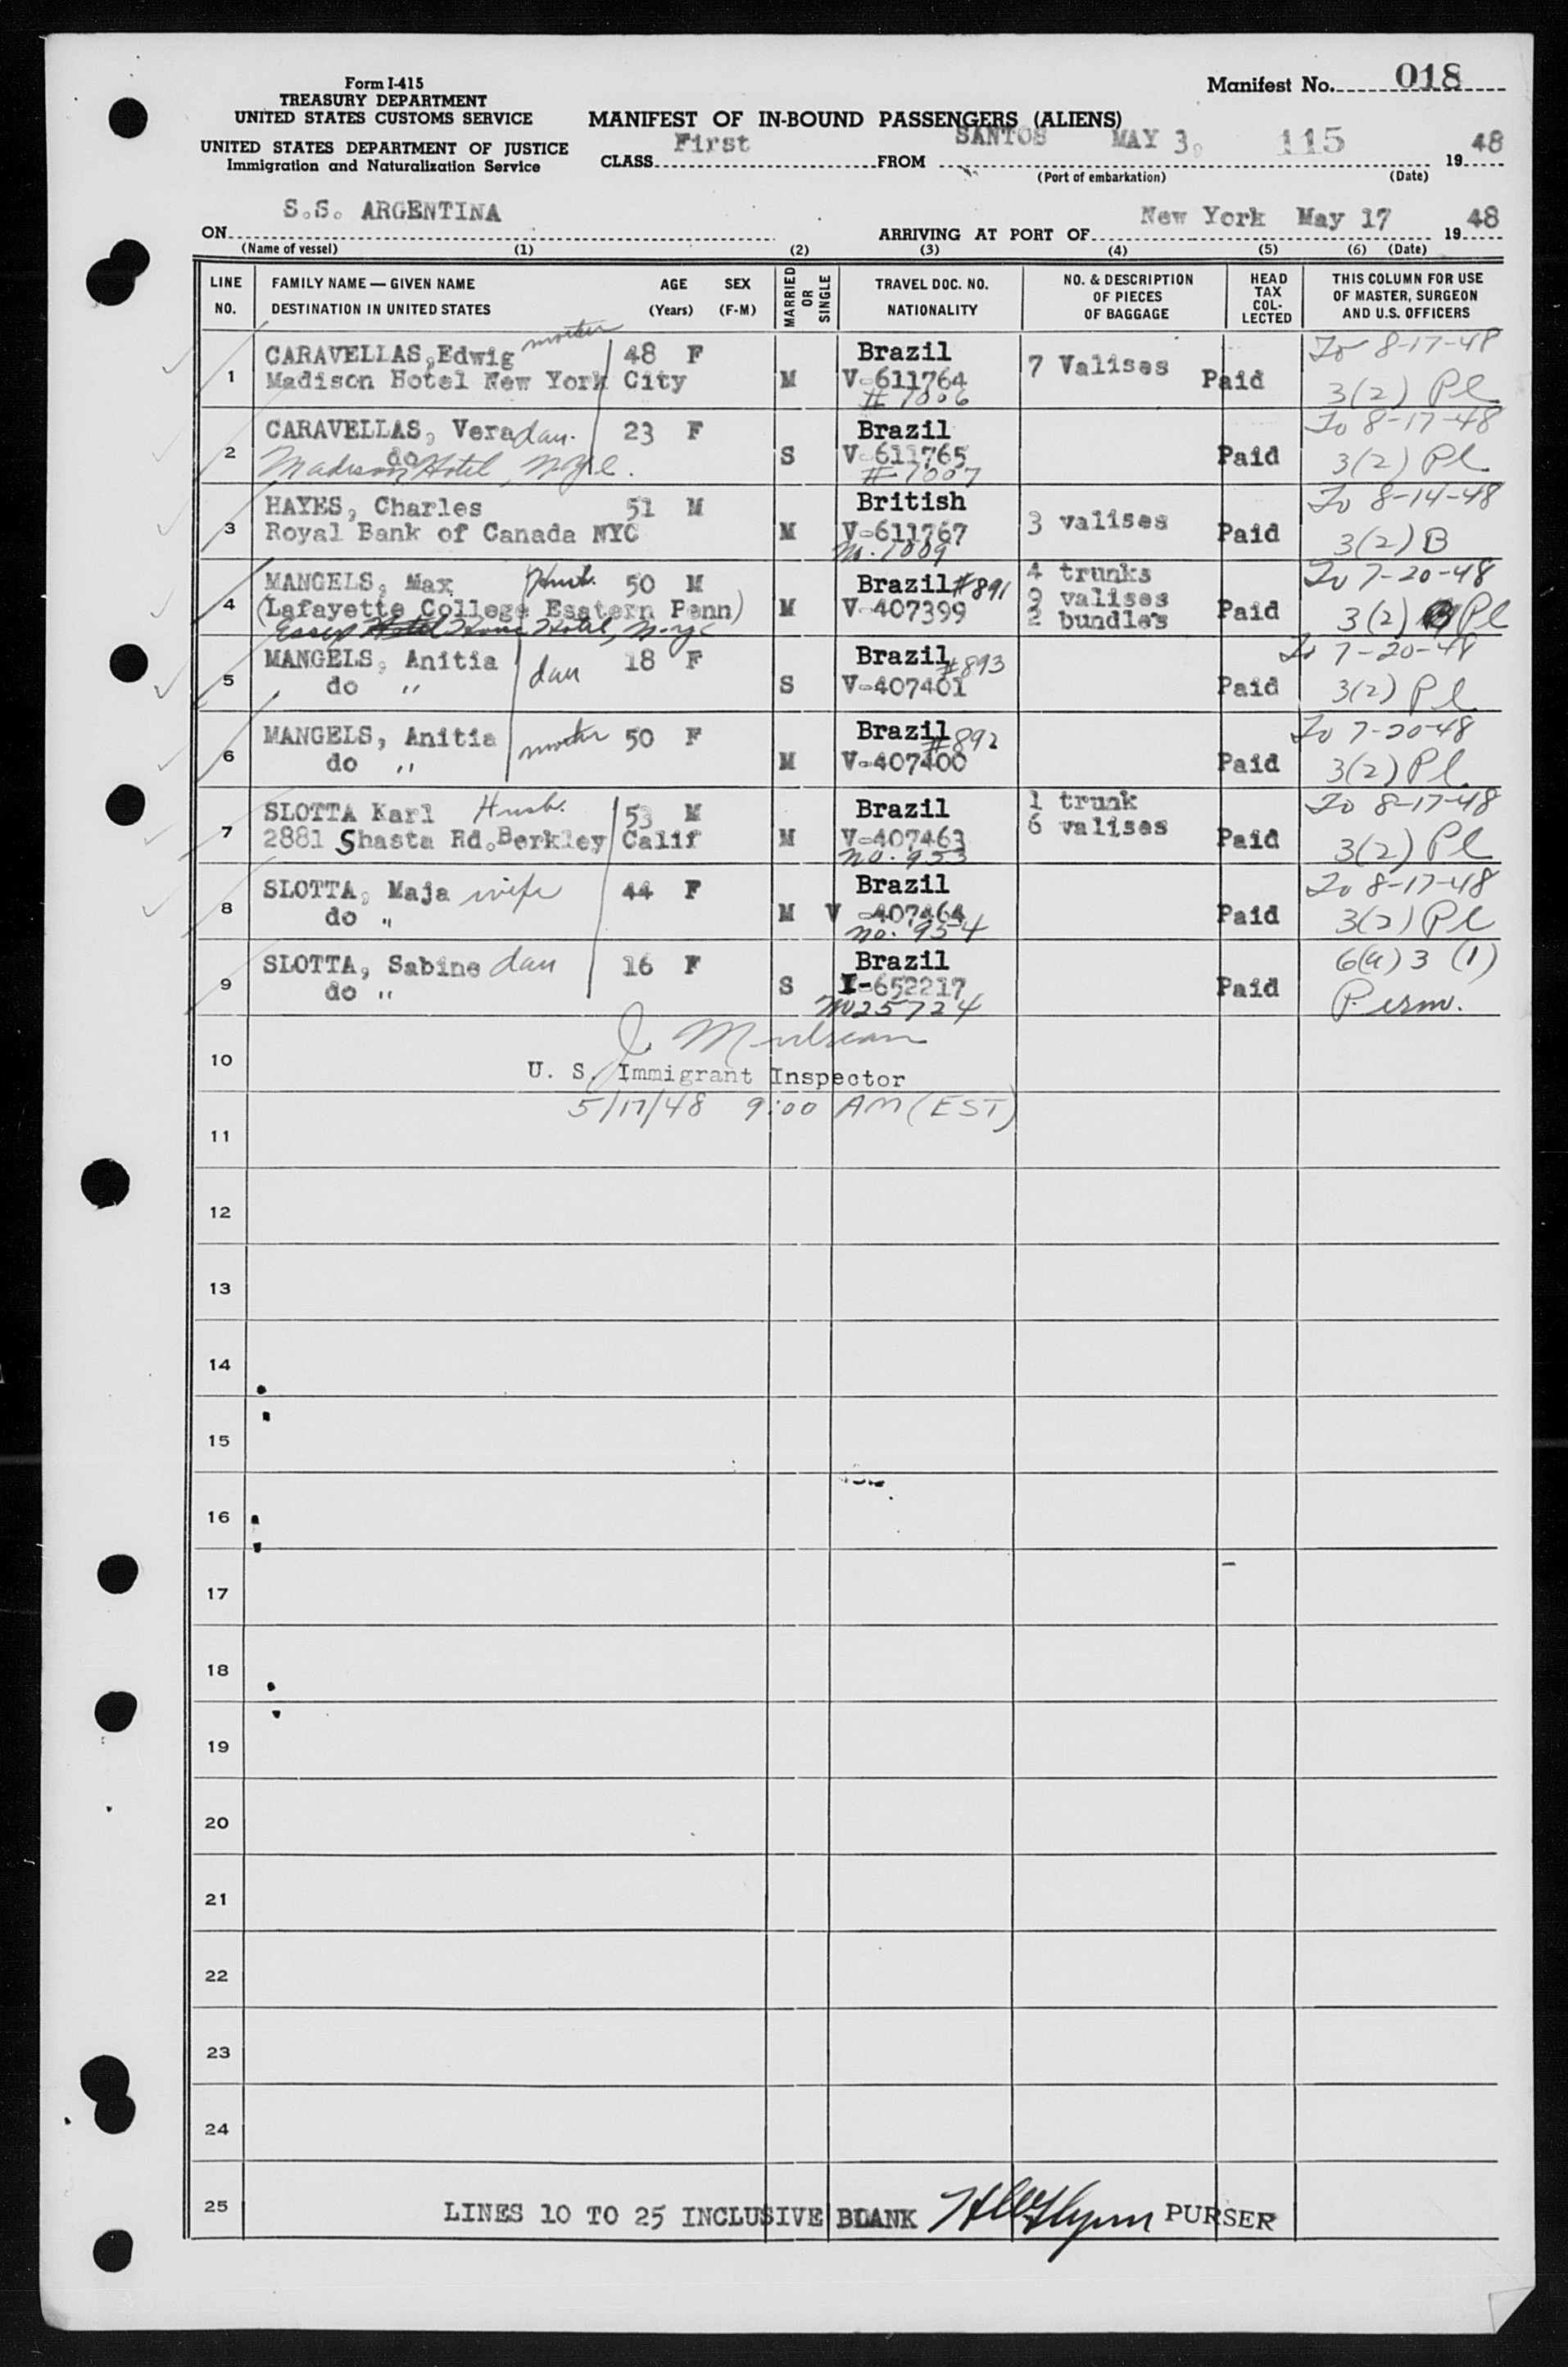 Form I-415
TREASURY DEPARTMENT
UNITED STATES CUSTOMS SERVICE
UNITED STATES DEPARTMENT OF JUSTICE
Immigration and Naturalization Service
Manifest No. 018
MANIFEST OF IN-BOUND PASSENGERS (ALIENS)
CLASS First FROM SANTOS MAY 3, 115 19 48
(Port of embarkation) (Date)
ON S.S. ARGENTINA ARRIVING AT PORT OF New York May 17 19 48
(Name of vessel) (1) (2) (3) (4) (5) (6) (Date)
LINE NO. FAMILY NAME — GIVEN NAME DESTINATION IN UNITED STATES AGE (Years) SEX (F-M) MARRIED OR SINGLE TRAVEL DOC. NO. NATIONALITY NO. & DESCRIPTION OF PIECES OF BAGGAGE HEAD TAX COL- LECTED THIS COLUMN FOR USE OF MASTER, SURGEON AND U.S. OFFICERS
CARAVELLAS, Edwig mother 48 F Brazil 7 Valises To 8-17-48
1 Madison Hotel New York City M V-611764 Paid 3(2) Pl
# 1006
CARAVELLAS, Vera dau. 23 F Brazil To 8-17-48
2 do S V-611765 Paid 3(2) Pl
Madison Hotel, NYC. # 1007
HAYES, Charles 51 M British 3 valises To 8-14-48
3 Royal Bank of Canada NYC M V-611767 Paid 3(2) B
No. 1009
MANGELS, Max Husb. 50 M Brazil #891 4 trunks To 7-20-48
4 (Lafayette College Esatern Penn) M V-407399 9 valises Paid 3(2) Pl
Essex House Hotel, N.Y.C 2 bundles
MANGELS, Anitia dau 18 F Brazil #893 To 7-20-48
5 do " S V-407401 Paid 3(2) Pl
MANGELS, Anitia mother 50 F Brazil #892 To 7-20-48
6 do " M V-407400 Paid 3(2) Pl.
SLOTTA Karl Husb. 53 M Brazil 1 trunk To 8-17-48
7 2881 Shasta Rd. Berkley Calif M V-407463 6 valises Paid 3(2) Pl
No. 953
SLOTTA, Maja wife 44 F Brazil To 8-17-48
8 do " M V -407464 Paid 3(2) Pl
No. 954
SLOTTA, Sabine dau 16 F Brazil 6(a) 3 (1)
9 do " S I-652217 Paid Perm.
No 25724
10
U. S. Immigrant Inspector
5/17/48 9:00 AM (EST)
11
12
13
14
15
16
17
18
19
20
21
22
23
24
25 LINES 10 TO 25 INCLUSIVE BLANK PURSER